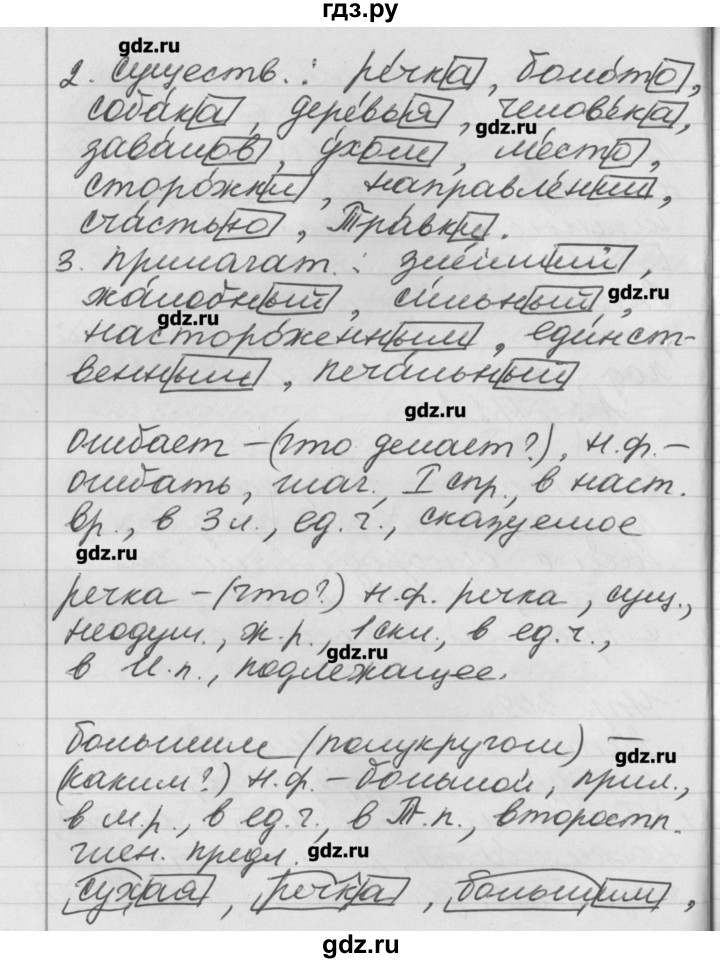 гдз.ру
gdz.ru
2. существ.: речка, болото,
собака, деревья, человека,
gdz.ru
завалов, ухом, место,
сторожки, направлений,
счастью, травки.
3. прилагат.: зме́иный,
жалобный, сильный,
gdz.ru
gdz.ru
настороженным, единст-
венным, печальный
gdz.ru
огибает – (что делает?), н.ф. –
огибать, глаг., I спр., в наст.
вр., в 3 л., ед.ч., сказуемое
gdz.ru
речка – (что?) н.ф. речка, сущ.,
неодуш., ж.р., 1 скл., в ед.ч.,
gdz.ru
в И.п., подлежащее.
большим (полукругом) –
gdz.ru
(каким?) н.ф. – большой, прил.,
в м.р., в ед.ч., в Т.п., второстп.
член. предл.
gdz.ru
сухая, речка, большим,
gdz.ru